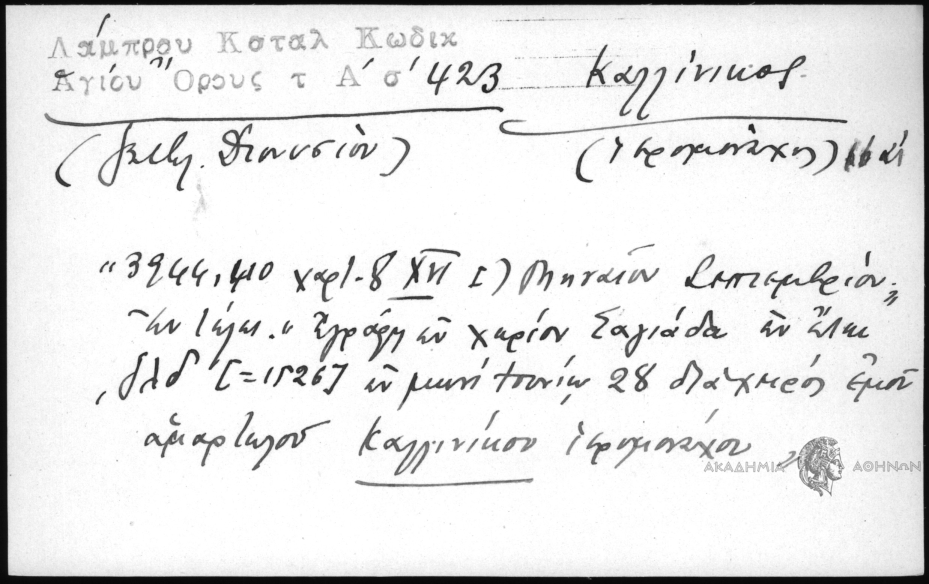 Λάμπρου Καταλ Κωδικ
Ἁγίου Ὄρους τ Α΄ σ΄ 423 Καλλίνικος
Διονυσίου) (ἱερομόναχος)
"3944, 410 χαρτ. 8 XVI 1) Μηναῖον Σεπτεμβρίου."
Ἐν τέλει. "Ἐγράφη ἐν χωρίον Σαγιάδα ἐν ἔτει
͵ζλδ΄ [=1526] ἐν μηνὶ Ἰουνίῳ 28 διὰ χειρός ἐμοῦ
ἁμαρτωλοῦ Καλλινίκου ἱερομονάχου"
ΑΚΑΔΗΜΙΑ ΑΘΗΝΩΝ